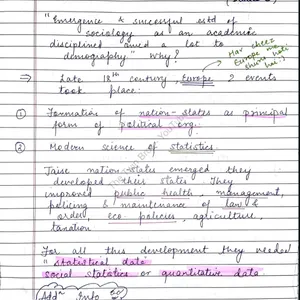 "Emergence & successful estd of
sociology as an academic
disciplined aimed a lot to
demography" why?
Har cheez
Europe me
hi :)
⇒ Late 18th century, Europe, 2 events
took place:
① Formation of nation-states as principal
form of political org.
② Modern science of statistics.
nation states emerged they
developed their states. They
improved public health management,
policing & maintenance of law &
order, eco policies, agriculture,
taxation
For all this development they needed
"statistical data"
social statistics or quantitative data
Addn Info